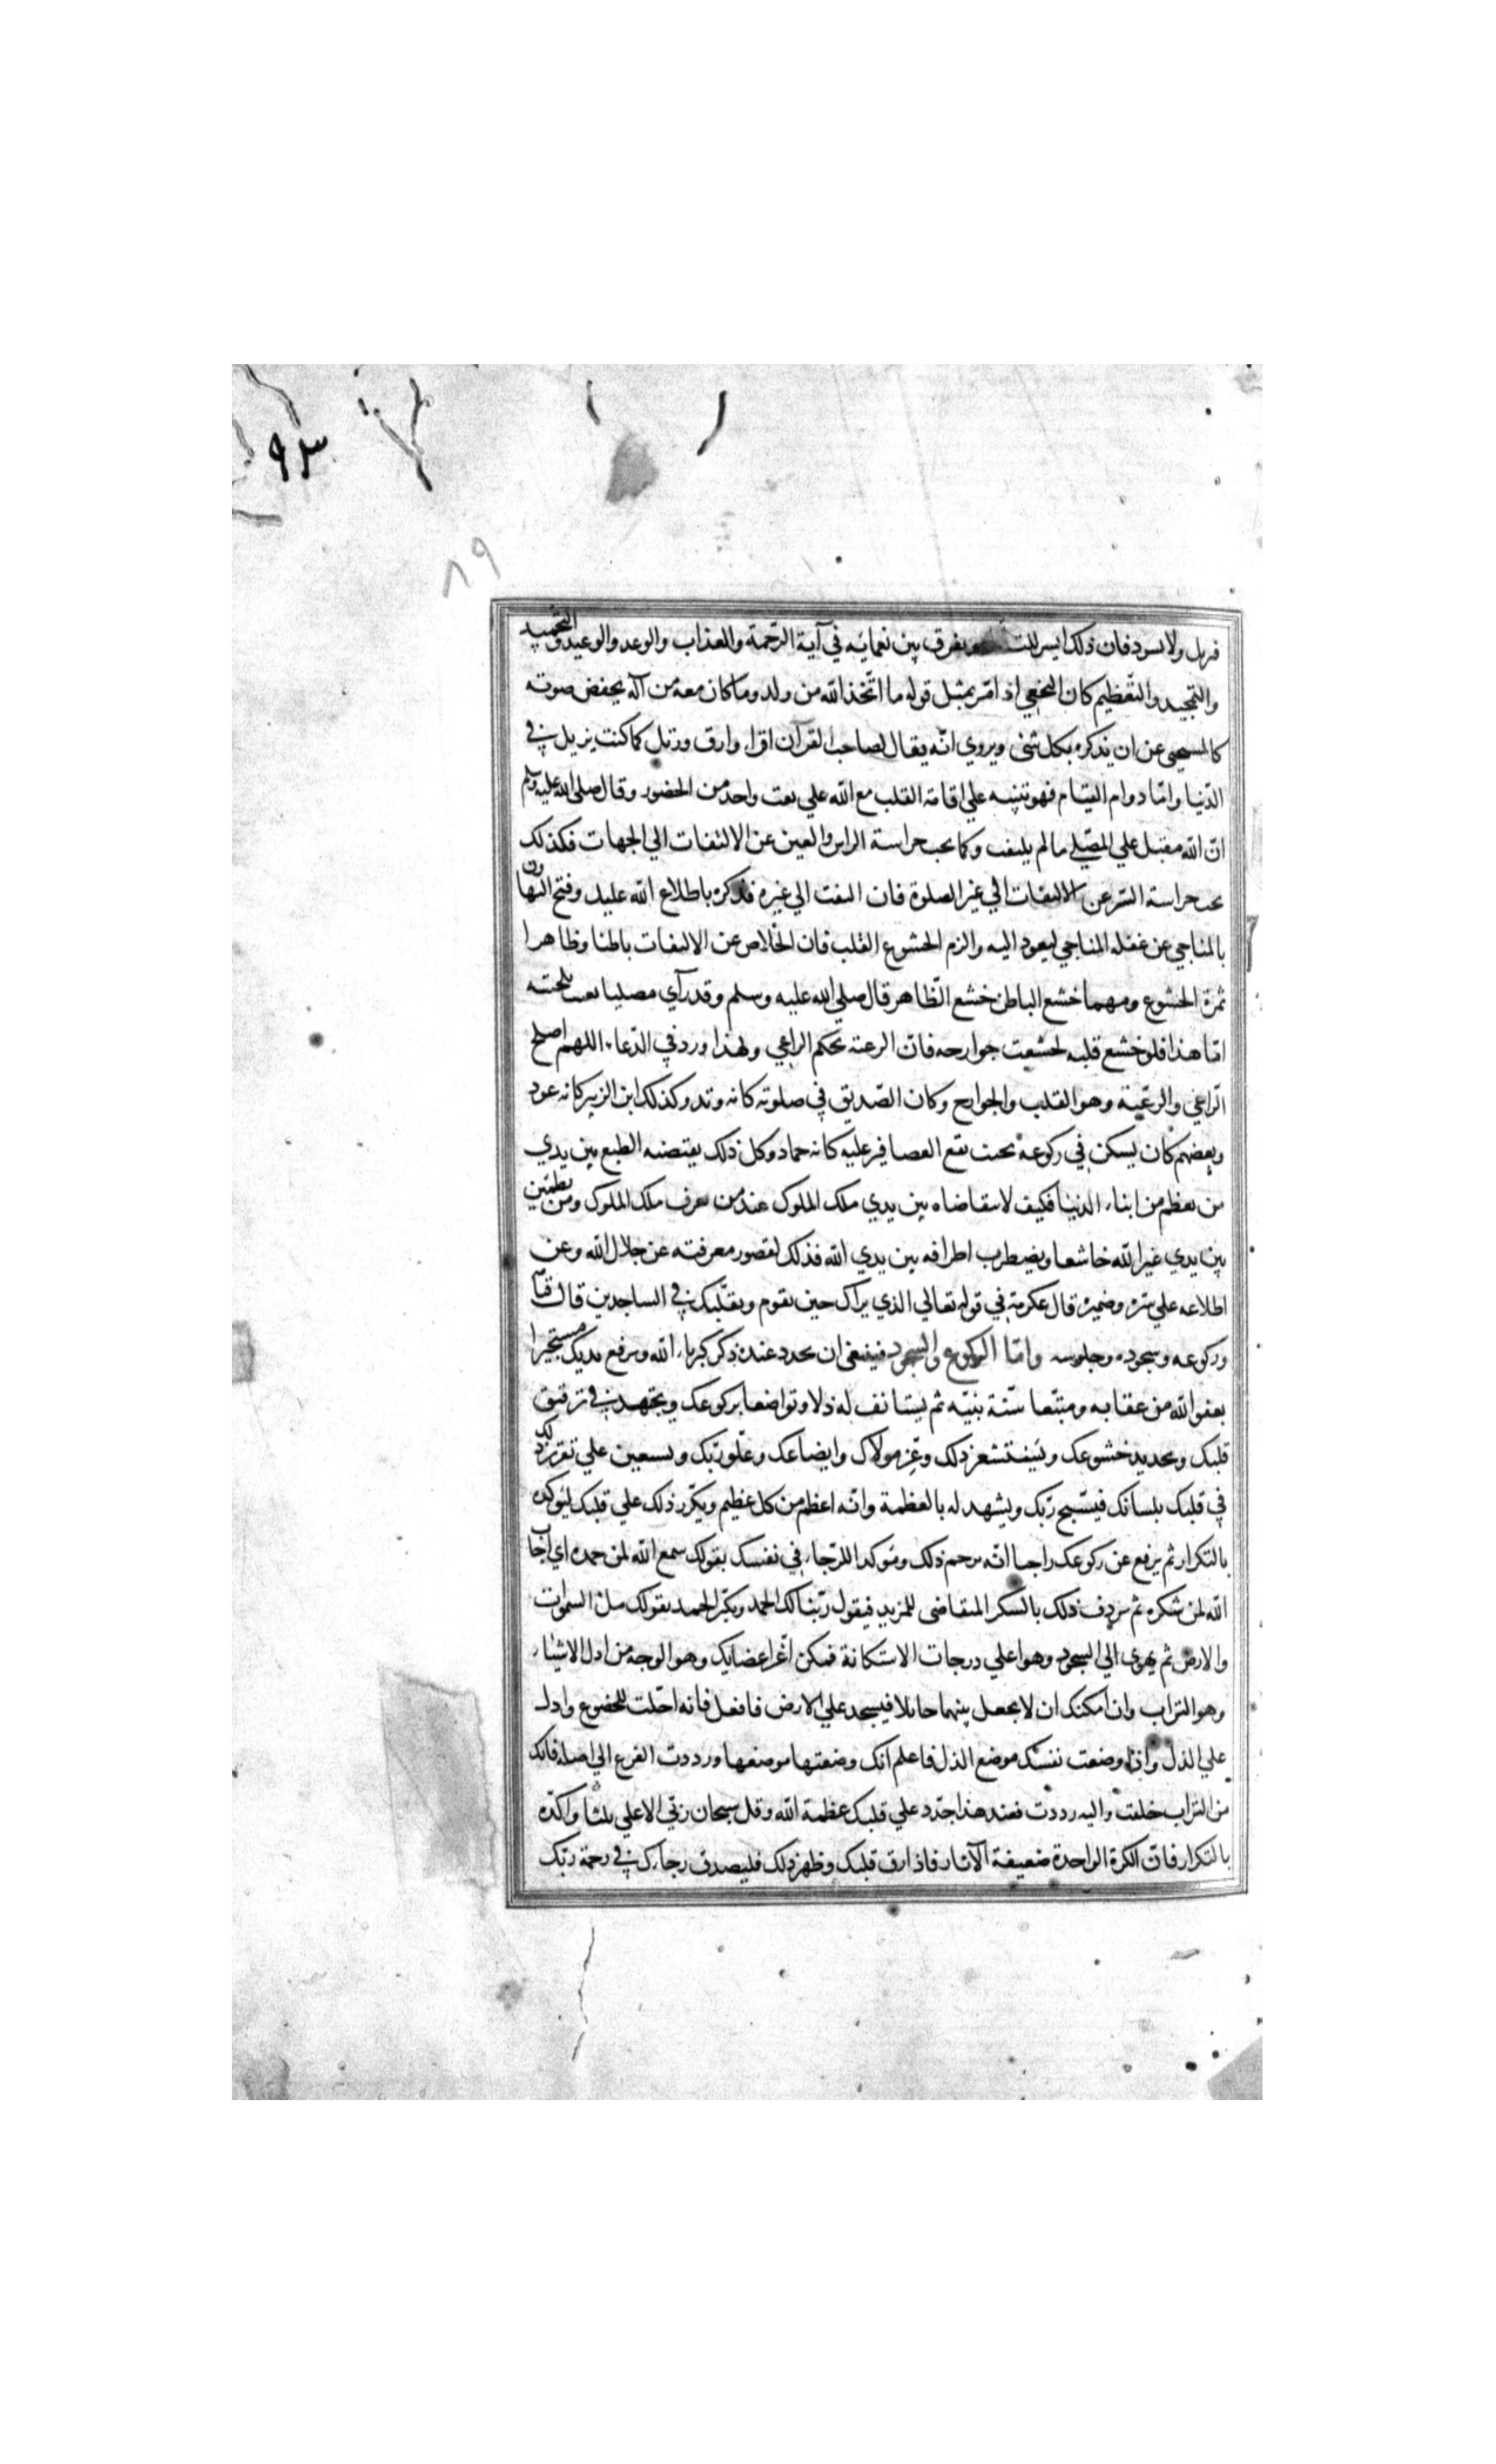 ٩٣
٨٩
فرتل ولا تسرد فان ذلك ايسر للتـ ويفرق بين نعماته في آية الرّحمة والعذاب والوعد والوعيد والتحميد
والتمجيد والتّعظيم كان النخعي اذا مرّ بمثل قوله ما اتّخذ الله من ولد وما كان معه من آله يخفض صوته
كالمستحيي عن ان يذكره بكل شئ ويروي انّه يقال لصاحب القرآن اقراء وارق ورتل كما كنت ترتل في
الدّنيا وامّا دوام القيام فهو تنبيه علي اقامة القلب مع الله علي نعت واحد من الحضور وقال صلى الله عليه وسلم
انّ الله مقبل علي المصلّي ما لم يلتفت وكما يجب حراسة الراس والعين عن الالتفات الي الجهات فكذلك
يجب حراسة السّر عن الالتفات الي غير الصلوة فان التفت الي غيره فذكره باطلاع الله عليك وقبح التهاون
بالمناجي عن غفلة المناجي ليعود اليه والزم الخشوع القلب فان الخلاص عن الالتفات باطنا وظاهرا
ثمرة الخشوع ومهما خشع الباطن خشع الظّاهر قال صلي الله عليه وسلم وقد رآي مصليا يعبث بلحيته
امّا هذا فلو خشع قلبه لخشعت جوارحه فانّ الرعيّة بحكم الراعي ولهذا ورد في الدّعاء اللهم اصلح
الرّاعي والرعيّة وهو القلب والجوارح وكان الصّديق في صلوته كانه وتد وكذلك ابن الزبير كانه عود
وبعضهم كان يسكن في ركوعه بحيث تقع العصافير عليه كانه جماد وكل ذلك يقتضيه الطبع بين يدي
من يعظم من ابناء الدنيا فكيف لا يتقاضاه بين يدي ملك الملوك عند من يعرف ملك الملوك ومن يطمئن
بين يدي غير الله خاشعا ويضطرب اطرافه بين يدي الله فذلك لقصور معرفته عن جلال الله وعن
اطلاعه علي سرّه وضميره قال عكرمة في قوله تعالي الذي يراك حين تقوم وتقلّبك في الساجدين قال قيامه
وركوعه وسجوده وجلوسه وامّا الركوع والسجود فينبغي ان يجدد عنده ذكر كبرياء الله وترفع يديك مستجيرا
بعفو الله من عقابه ومتبّعا سنّة نبيّه ثم يستانف له ذلا وتواضعا بركوعك ويجتهد في ترقيق
قلبك وتجديد خشوعك ويستشعر ذلك وعزّ مولاك وايضاعك وعلّو ربّك وتستعين علي تقرير ذلك
في قلبك بلسانك فيسّبح ربّك ويشهد له بالعظمة وانّه اعظم من كل عظيم ويكّرر ذلك علي قلبك ليوكده
بالتكرار ثم يرفع عن ركوعك راجيا انّه يرحم ذلك وموكدا للرّجاء في نفسك بقولك سمع الله لمن حمده اي اجاب
الله لمن شكره ثم يردف ذلك بالشكر المتقاضى للمزيد فيقول ربّنا لك الحمد ويكثر الحمد بقولك ملئ السموات
والارض ثم يهوى الي السجود وهو اعلي درجات الاستكانة فمكن اعّز اعضايك وهو الوجه من اذل الاشياء
وهو التراب وان امكنك ان لا يجعل بينهما حائلا فيسجد علي الارض فافعل فانه اجلب للخضوع وادل
علي الذل واذا وضعت نفسك موضع الذل فاعلم انك وضعتها موضعها ورددت الفرع الي اصله فانك
من التراب خلقت واليه رددت فعند هذا جدّد علي قلبك عظمة الله وقل سبحان ربّي الاعلي ثلثا واكّده
بالتكرار فانّ الكرة الواحدة ضعيفة الآثار فاذا رق قلبك وظهر ذلك فليصدق رجاءك في رحمة ربّك